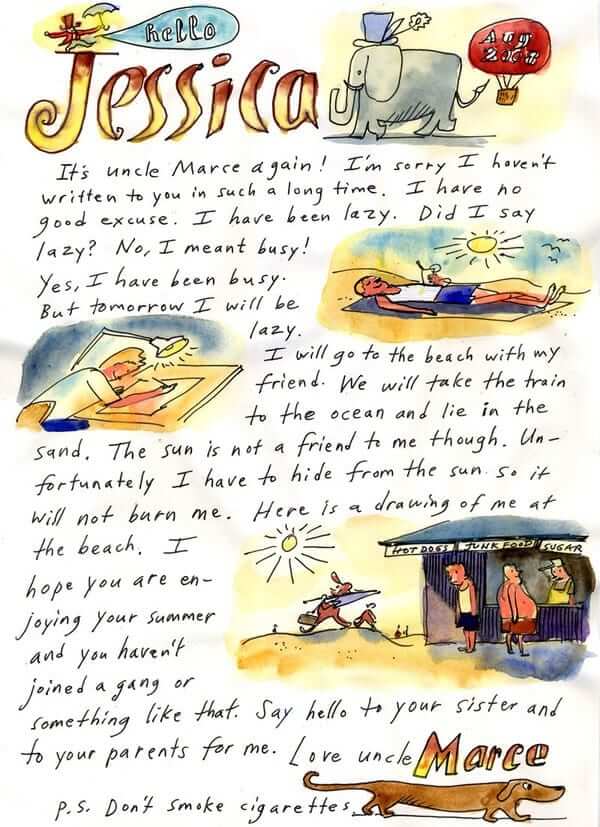 hello
Jessica
Aug
2008
It's uncle Marce again! I'm sorry I haven't
written to you in such a long time. I have no
good excuse. I have been lazy. Did I say
lazy? No, I meant busy!
Yes, I have been busy.
But tomorrow I will be
lazy.
I will go to the beach with my
friend. We will take the train
to the ocean and lie in the
sand. The sun is not a friend to me though. Un-
fortunately I have to hide from the sun so it
will not burn me. Here is a drawing of me at
the beach. I
HOT DOGS JUNK FOOD SUGAR
hope you are en-
joying your summer
and you haven't
joined a gang or
something like that. Say hello to your sister and
to your parents for me. Love uncle Marce
P.S. Don't smoke cigarettes.